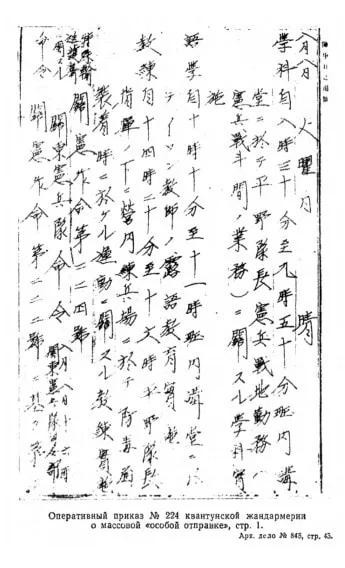 八月八日 火曜日 晴
學科自八時三十分至九時五十分班内講
堂ニ於テ平野隊長憲兵戰地勤務(
憲兵戰斗間ノ業務)ニ關スル學科實
施
語學自十時十分至十一時班内講堂ニ於
教師ノ露語教育實施
教練自十四時二十分至十六時平野隊長
指揮ノ下ニ營内練兵場ニ於テ防毒面
裝着時ニ於ケル運動ニ關スル教練實施
關憲作命第二二四號
ニ關スル命令
關東憲兵隊命令
八月八日十六時
關東憲兵隊司令部
關憲作命第二二二號ニ基ク第
Оперативный приказ № 224 квантунской жандармерии
о массовой «особой отправке», стр. 1.
Арх. дело № 845, стр. 43.